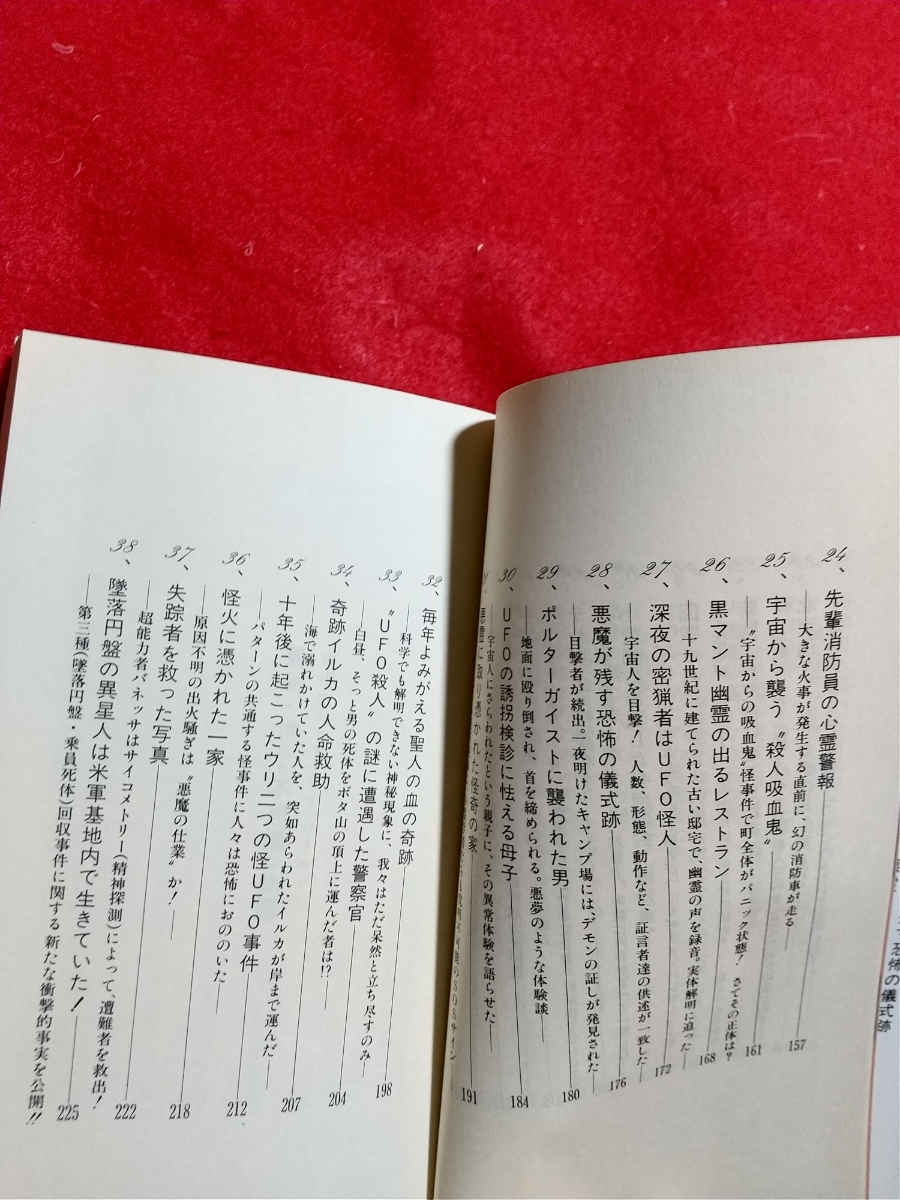 24、先輩消防員の心霊警報
――大きな火事が発生する直前に、幻の消防車が走る
157
25、宇宙から襲う〝殺人吸血鬼〟
――〝宇宙からの吸血鬼〟怪事件で町全体がパニック状態！　さてその正体は？
161
26、黒マント幽霊の出るレストラン
――十九世紀に建てられた古い邸宅で、幽霊の声を録音。実体解明に迫った
168
27、深夜の密猟者はUFO怪人
――宇宙人を目撃！　人数、形態、動作など、証言者達の供述が一致した
172
28、悪魔が残す恐怖の儀式跡
――目撃者が続出。一夜明けたキャンプ場には、デモンの証しが発見された
176
29、ポルターガイストに襲われた男
――地面に殴り倒され、首を締められる。悪夢のような体験談
180
30、UFOの誘拐検診に怯える母子
――宇宙人にさらわれたという親子に、その異常体験を語らせた
184
悪霊に取り憑かれた怪奇の家
のSOSサイン
191
32、毎年よみがえる聖人の血の奇跡
――科学でも解明できない神秘現象に、我々はただ呆然と立ち尽すのみ
198
33、〝UFO殺人〟の謎に遭遇した警察官
――白昼、そっと男の死体をボタ山の頂上に運んだ者は!?
204
34、奇跡イルカの人命救助
――海で溺れかけていた人を、突如あらわれたイルカが岸まで運んだ
207
35、十年後に起こったウリ二つの怪UFO事件
――パターンの共通する怪事件に人々は恐怖におののいた
212
36、怪火に憑かれた一家
――原因不明の出火騒ぎは〝悪魔の仕業〟か！
218
37、失踪者を救った写真
――超能力者バネッサはサイコメトリー(精神探測)によって、遭難者を救出！
222
38、墜落円盤の異星人は米軍基地内で生きていた！
――第三種(墜落円盤・乗員死体)回収事件に関する新たな衝撃的事実を公開!!
225
恐怖の儀式跡